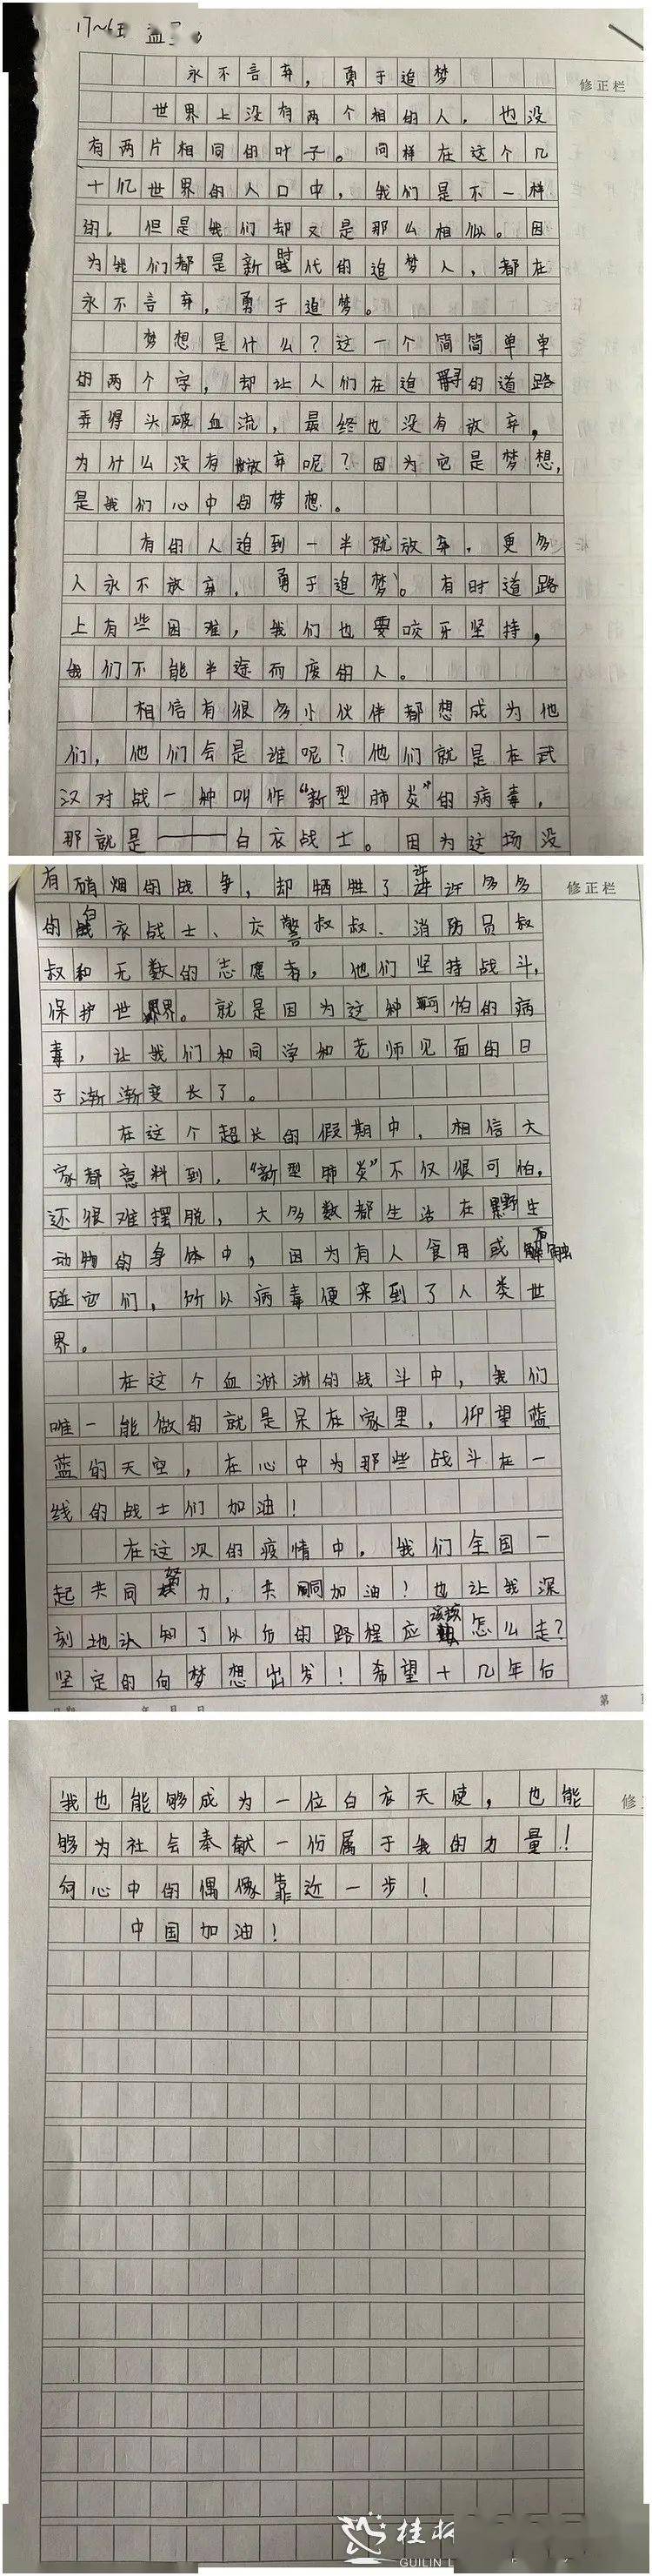 17~6班
永不言弃，勇于追梦
修正栏
世界上没有两个相的人，也没
有两片相同的叶子。同样在这个几
十亿世界的人口中，我们是不一样
的。但是我们却又是那么相似。因
为我们都是新时代的追梦人，都在
永不言弃，勇于追梦。
梦想是什么？这一个简简单单
的两个字，却让人们在追寻的道路
弄得头破血流，最终也没有放弃，
为什么没有放弃呢？因为它是梦想，
是我们心中的梦想。
有的人追到一半就放弃，更多
人永不放弃，勇于追梦。有时道路
上有些困难，我们也要咬牙坚持，
我们不能半途而废的人。
相信有很多小伙伴都想成为他
们，他们会是谁呢？他们就是在武
汉对战一种叫作“新型肺炎”的病毒，
那就是——白衣战士。因为这场没
有硝烟的战争，却牺牲了许许多多
修正栏
的白衣战士、交警叔叔、消防员叔
叔和无数的志愿者，他们坚持战斗，
保护世界。就是因为这种可怕的病
毒，让我们和同学和老师见面的日
子渐渐变长了。
在这个超长的假期中，相信大
家都意料到，“新型肺炎”不仅很可怕，
还很难摆脱，大多数都生活在野生
动物的身体中，因为有人食用或触
碰它们，所以病毒便来到了人类世
界。
在这个血淋淋的战斗中，我们
唯一能做的就是呆在家里，仰望蓝
蓝的天空，在心中为那些战斗在一
线的战士们加油！
在这次的疫情中，我们全国一
起共同努力，共同加油！也让我深
刻地认知了以后的路程应该怎么走？
坚定的向梦想出发！希望十几年后
年 月 日
第
我也能够成为一位白衣天使，也能
修
够为社会奉献一份属于我的力量！
向心中的偶像靠近一步！
中国加油！
桂
GUILIN